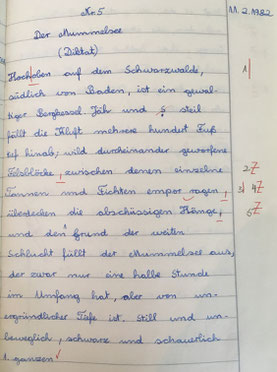 Nr. 5
11. 2. 1982
Der Mummelsee
(Diktat)
Hochoben auf dem Schwarzwalde,
südlich von Baden, ist ein gewal-
tiger Bergkessel. Jäh und s steil
fällt die Kluft mehrere hundert Fuß
tief hinab; wild durcheinander geworfene
Felsblöcke, zwischen denen einzelne
Tannen und Fichten empor ragen,
überdecken die abschüssigen Hänge,
und den Grund der weiten
Schlucht füllt der Mummelsee aus,
der zwar nur eine halbe Stunde
im Umfang hat, aber von un-
ergründlicher Tiefe ist. Still und un-
beweglich, schwarz und schauerlich
1. ganzen
1|
2 Z
3| 4 Z
5 Z